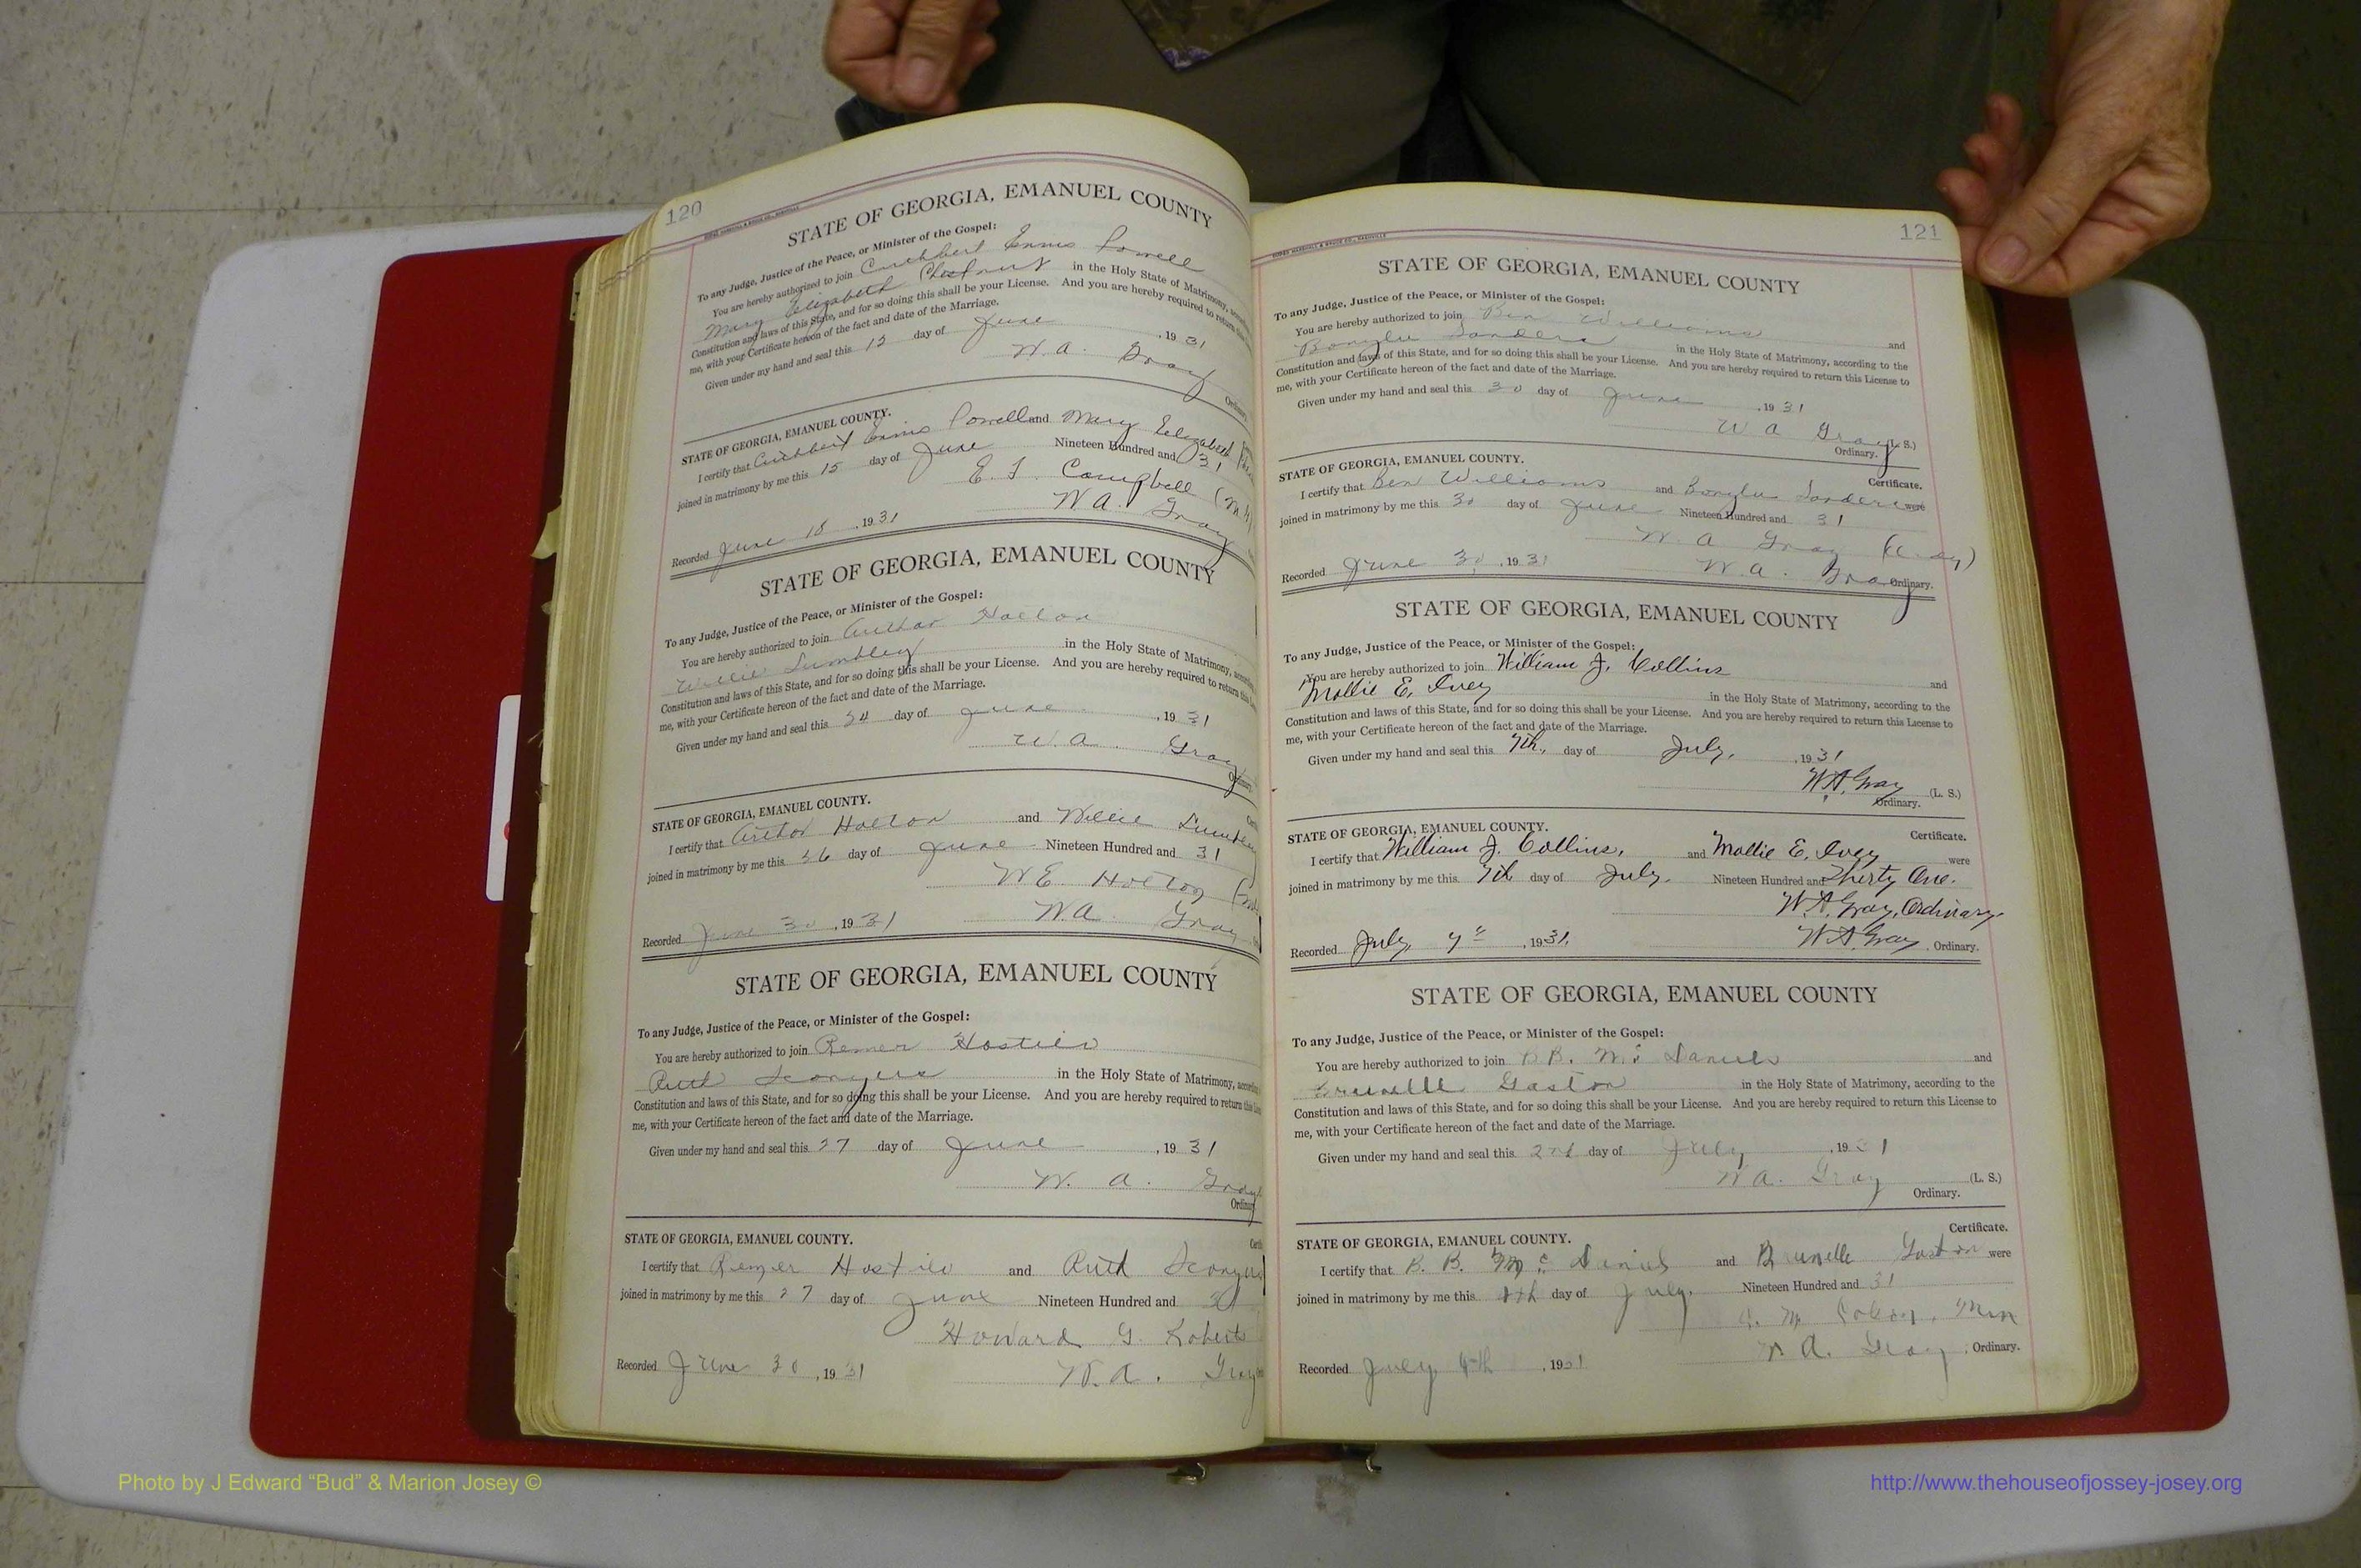 120
STATE OF GEORGIA, EMANUEL COUNTY
To any Judge, Justice of the Peace, or Minister of the Gospel:
You are hereby authorized to join Cuthbert Ennis Powell
Mary Elizabeth Chestnut in the Holy State of Matrimony,
Constitution and laws of this State, and for so doing this shall be your License. And you are hereby required to return
me, with your Certificate hereon of the fact and date of the Marriage.
Given under my hand and seal this 13 day of June , 1931
W. A. Gray
Ordinary
STATE OF GEORGIA, EMANUEL COUNTY.
I certify that Cuthbert Ennis Powell and Mary Elizabeth
joined in matrimony by me this 15 day of June Nineteen Hundred and 31
Campbell
Recorded June 18 , 1931 W. A. Gray
STATE OF GEORGIA, EMANUEL COUNTY
To any Judge, Justice of the Peace, or Minister of the Gospel:
You are hereby authorized to join Arthor Holton
Willie Lumbley in the Holy State of Matrimony,
Constitution and laws of this State, and for so doing this shall be your License. And you are hereby required to return
me, with your Certificate hereon of the fact and date of the Marriage.
Given under my hand and seal this day of June , 1931
W. A. Gray
Ordinary.
STATE OF GEORGIA, EMANUEL COUNTY.
I certify that Arthor Holton and Willie Lumbley
joined in matrimony by me this 26 day of June Nineteen Hundred and 31
W E Holton
Recorded June 30 , 1931 W. A. Gray
STATE OF GEORGIA, EMANUEL COUNTY
To any Judge, Justice of the Peace, or Minister of the Gospel:
You are hereby authorized to join Remer Hostilo
Ruth Sconyers in the Holy State of Matrimony,
Constitution and laws of this State, and for so doing this shall be your License. And you are hereby required to return
me, with your Certificate hereon of the fact and date of the Marriage.
Given under my hand and seal this 27 day of June , 1931
W. A. Gray
Ordinary
STATE OF GEORGIA, EMANUEL COUNTY.
I certify that Remer Hostilo and Ruth Sconyers
joined in matrimony by me this 27 day of June Nineteen Hundred and 31
Howard G. Roberts
Recorded June 30 , 1931 W. A. Gray
121
STATE OF GEORGIA, EMANUEL COUNTY
To any Judge, Justice of the Peace, or Minister of the Gospel:
You are hereby authorized to join Ben Williams and
Bonylu Sanders in the Holy State of Matrimony, according to the
Constitution and laws of this State, and for so doing this shall be your License. And you are hereby required to return this License to
me, with your Certificate hereon of the fact and date of the Marriage.
Given under my hand and seal this 30 day of June , 1931
W A Gray (L. S.)
Ordinary.
STATE OF GEORGIA, EMANUEL COUNTY. Certificate.
I certify that Ben Williams and Bonylu Sanders were
joined in matrimony by me this 30 day of June Nineteen Hundred and 31
W A Gray
Recorded June 30 , 1931 W. A. Gray Ordinary.
STATE OF GEORGIA, EMANUEL COUNTY
To any Judge, Justice of the Peace, or Minister of the Gospel:
You are hereby authorized to join William J. Collins and
Mollie E. Ivey in the Holy State of Matrimony, according to the
Constitution and laws of this State, and for so doing this shall be your License. And you are hereby required to return this License to
me, with your Certificate hereon of the fact and date of the Marriage.
Given under my hand and seal this 7th, day of July, , 1931
W. A. Gray (L. S.)
Ordinary.
STATE OF GEORGIA, EMANUEL COUNTY. Certificate.
I certify that William J. Collins, and Mollie E. Ivey were
joined in matrimony by me this 7th day of July. Nineteen Hundred and Thirty One.
W. A. Gray, Ordinary.
Recorded July, 7th , 1931. W. A. Gray Ordinary.
STATE OF GEORGIA, EMANUEL COUNTY
To any Judge, Justice of the Peace, or Minister of the Gospel:
You are hereby authorized to join B B. Mc Daniels and
Brunelle Gaston in the Holy State of Matrimony, according to the
Constitution and laws of this State, and for so doing this shall be your License. And you are hereby required to return this License to
me, with your Certificate hereon of the fact and date of the Marriage.
Given under my hand and seal this 2nd day of July , 1931
W A. Gray (L. S.)
Ordinary.
STATE OF GEORGIA, EMANUEL COUNTY. Certificate.
I certify that B. B. Mc Daniels and Brunelle Gaston were
joined in matrimony by me this day of July. Nineteen Hundred and 31
Min
Recorded July , 1931 W. A. Gray , Ordinary.
Photo by J Edward “Bud” & Marion Josey ©
http://www.thehouseofjossey-josey.org